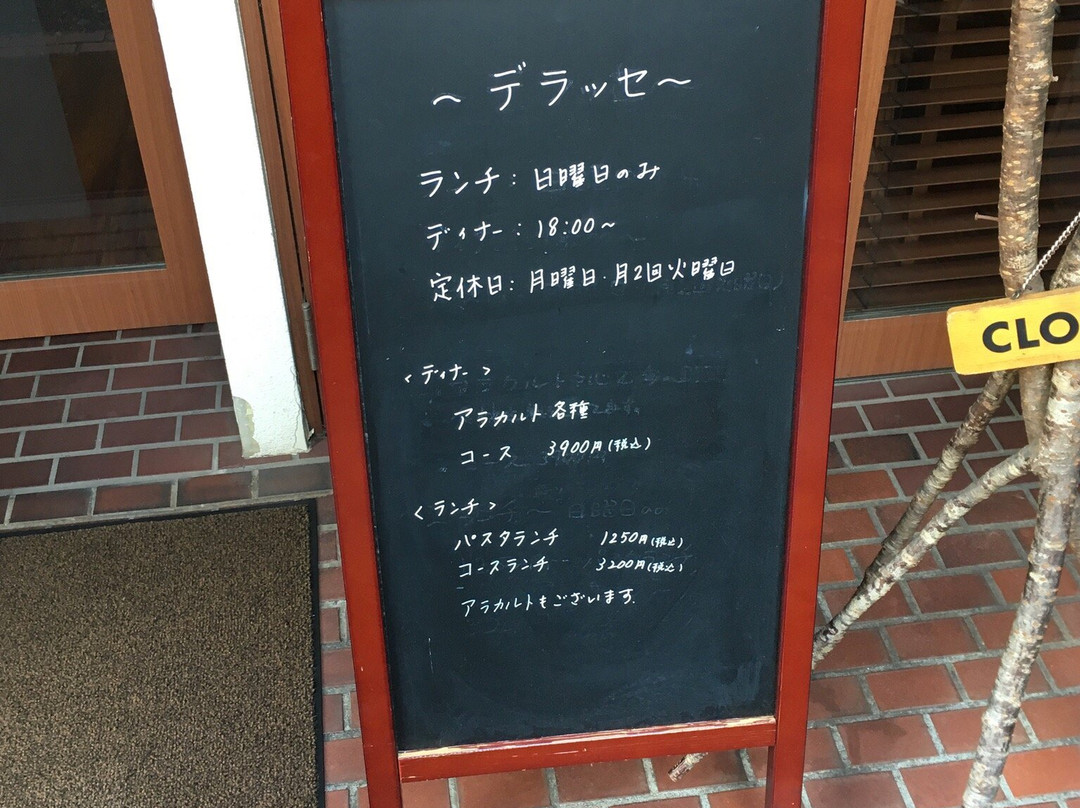 ～デラッセ～
ランチ：日曜日のみ
ディナー：18:00～
定休日：月曜日・月2回火曜日
＜ディナー＞
アラカルト各種
コース 3900円(税込)
＜ランチ＞
パスタランチ 1250円(税込)
コースランチ 3200円(税込)
アラカルトもございます。
CLO